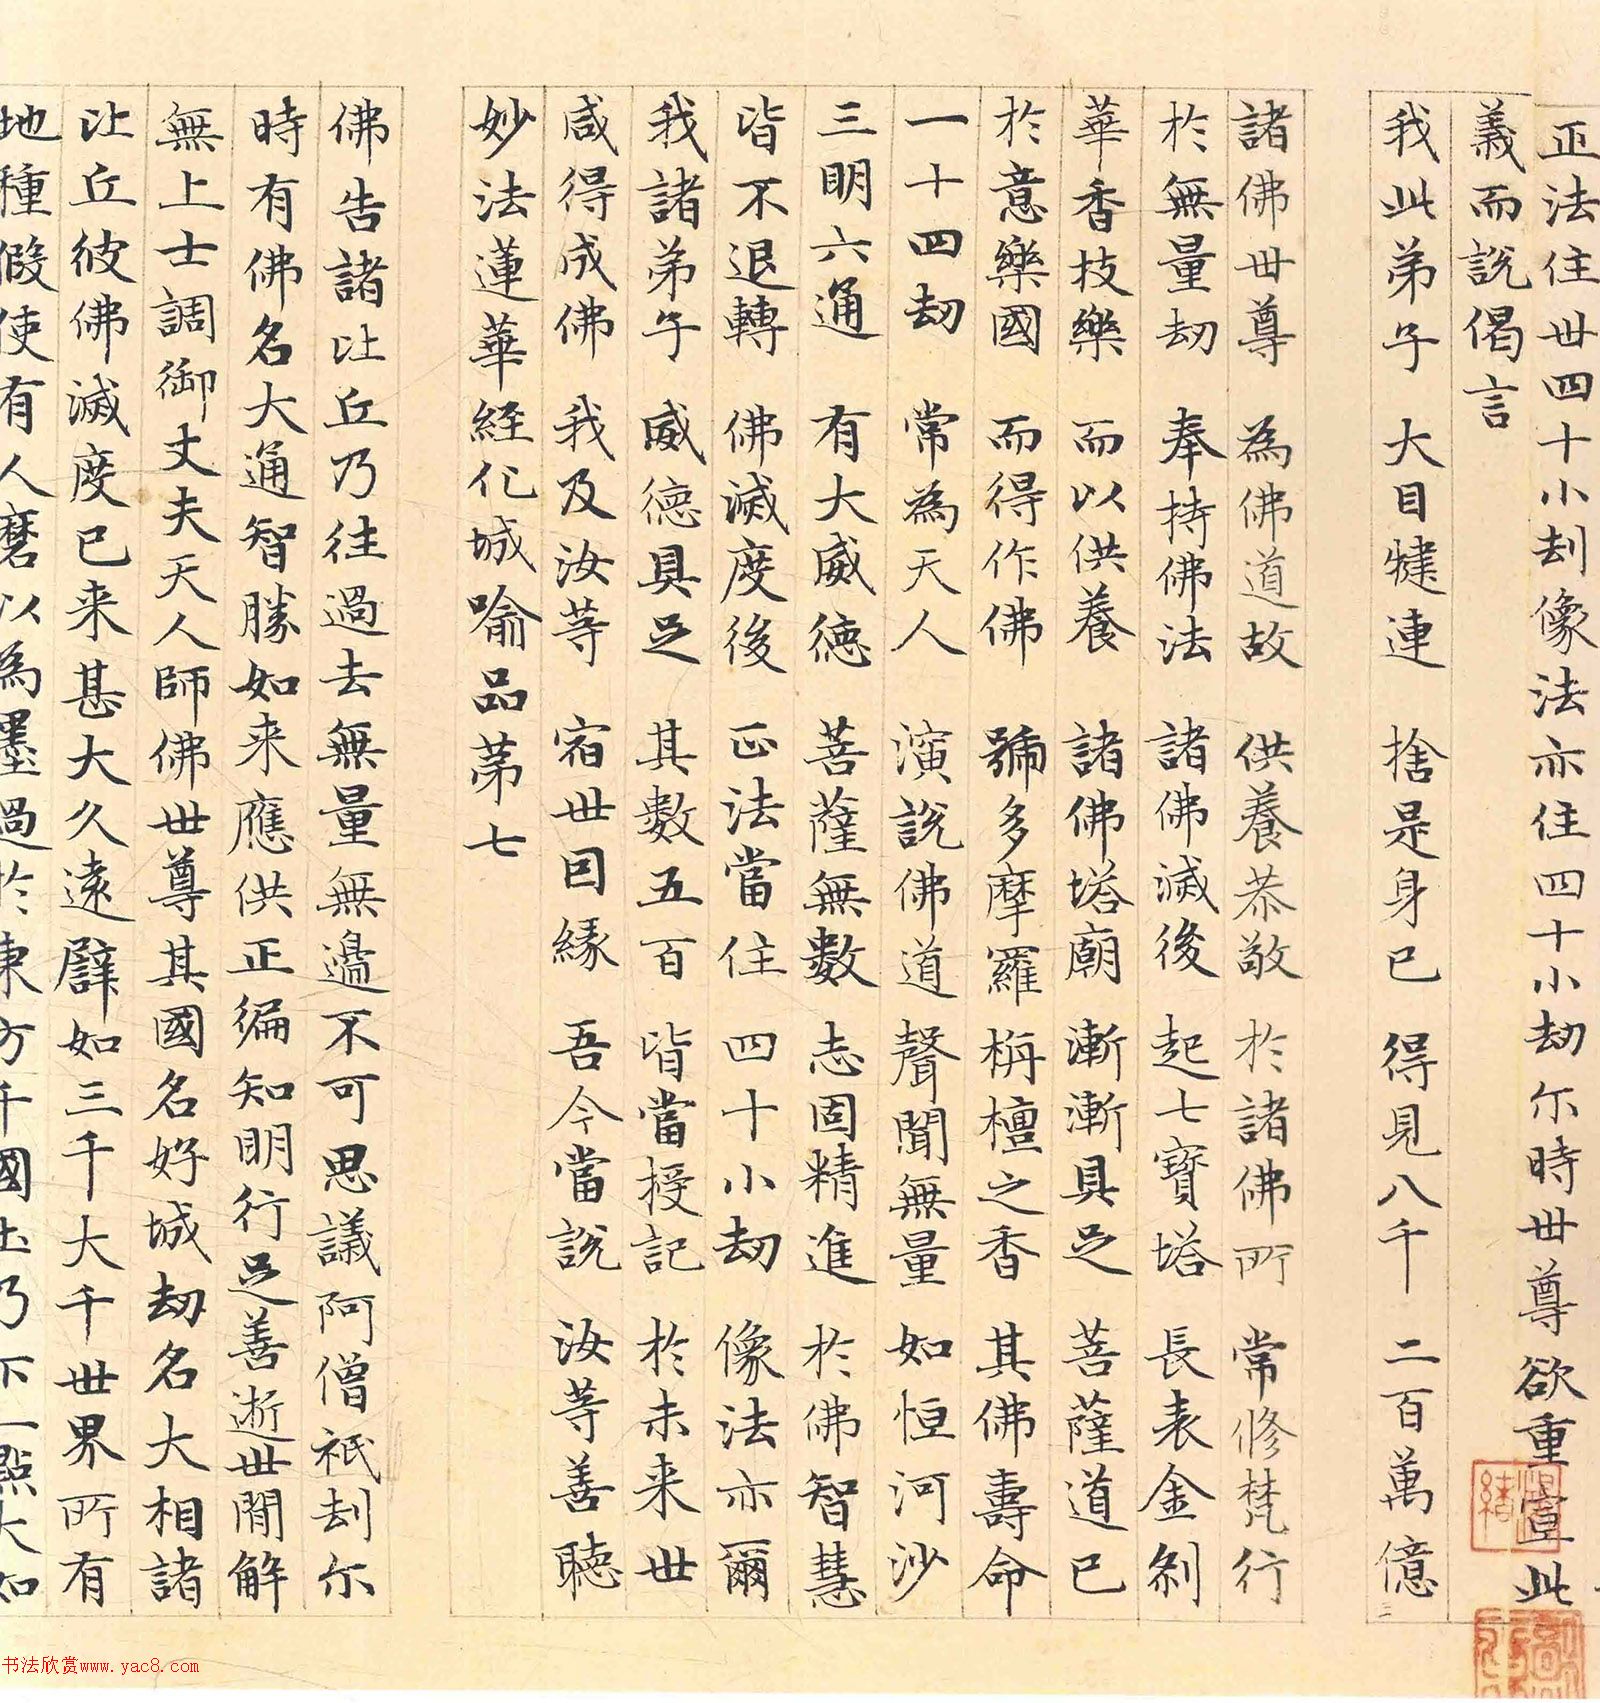 正法住世四十小劫像法亦住四十小劫尔時世尊欲重宣此
義而說偈言
我此弟子 大目犍連 捨是身已 得見八千 二百萬億
諸佛世尊 為佛道故 供養恭敬 於諸佛所 常修梵行
於無量劫 奉持佛法 諸佛滅後 起七寶塔 長表金剎
華香技樂 而以供養 諸佛塔廟 漸漸具足 菩薩道已
於意樂國 而得作佛 號多摩羅 栴檀之香 其佛壽命
一十四劫 常為天人 演說佛道 聲聞無量 如恒河沙
三明六通 有大威德 菩薩無數 志固精進 於佛智慧
皆不退轉 佛滅度後 正法當住 四十小劫 像法亦爾
我諸弟子 威德具足 其數五百 皆當授記 於未来世
咸得成佛 我及汝等 宿世因緣 吾今當說 汝等善聽
妙法蓮華經化城喻品第七
佛告諸比丘乃往過去無量無邊不可思議阿僧祇劫尔
時有佛名大通智勝如来應供正徧知明行足善逝世間解
無上士調御丈夫天人師佛世尊其國名好城劫名大相諸
比丘彼佛滅度已来甚大久遠譬如三千大千世界所有
地種假使有人磨以為墨過於東方千國土乃下一點大如
書法欣赏www.yac8.com